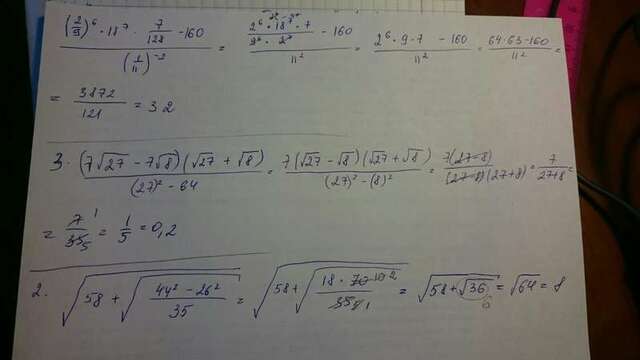 ((2/9)^6 · 18^7 · 7/128 - 160) / (1/11)^-2 = (2^6 · 18^7 · 7 / 9^6 · 2^7 - 160) / 11^2 = (2^6 · 9 · 7 - 160) / 11^2 = (64 · 63 - 160) / 11^2 =
= 3872 / 121 = 32
3. (7√27 - 7√8)(√27 + √8) / ((27)^2 - 64) = 7(√27 - √8)(√27 + √8) / ((27)^2 - (8)^2) = 7(27-8) / (27-8)(27+8) = 7 / 27+8 =
= 7 1 / 35 5 = 1/5 = 0,2
2. √(58 + √((44^2 - 26^2) / 35)) = √(58 + √(18 · 70 2 / 35 1)) = √(58 + √36) = √64 = 8
6